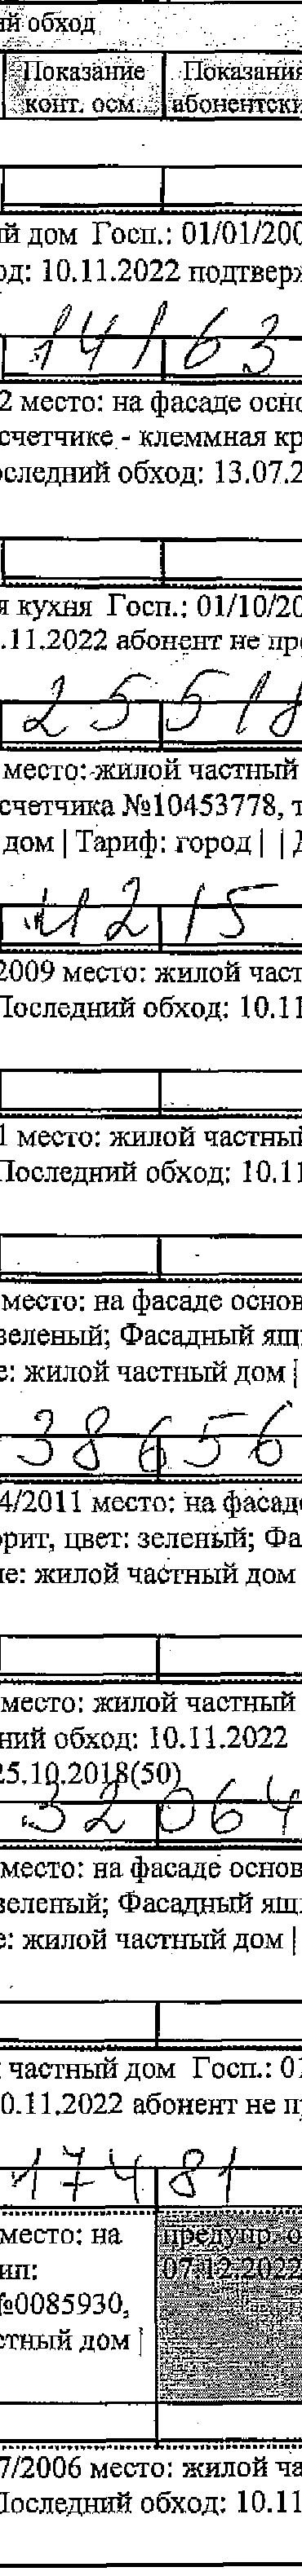 ий обход
Показание Показания
конт. осм. абонентски
ий дом Госп.: 01/01/200
од: 10.11.2022 подтверж
14163
2 место: на фасаде осно
счетчике - клеммная кр
оследний обход: 13.07.2
я кухня Госп.: 01/10/20
.11.2022 абонент не пре
25518
место: жилой частный
счетчика №10453778, т
дом | Тариф: город | | Д
11215
2009 место: жилой част
Последний обход: 10.11
1 место: жилой частный
Последний обход: 10.11
место: на фасаде основ
зеленый; Фасадный ящ
е: жилой частный дом |
38656
4/2011 место: на фасаде
орит, цвет: зеленый; Фа
ие: жилой частный дом
место: жилой частный
ний обход: 10.11.2022
25.10.2018(50)
32064
место: на фасаде основ
зеленый; Фасадный ящ
е: жилой частный дом |
й частный дом Госп.: 01
0.11.2022 абонент не п
17481
место: на предупр. о
ип: 07.12.2022
№0085930,
стный дом |
7/2006 место: жилой ча
Последний обход: 10.11